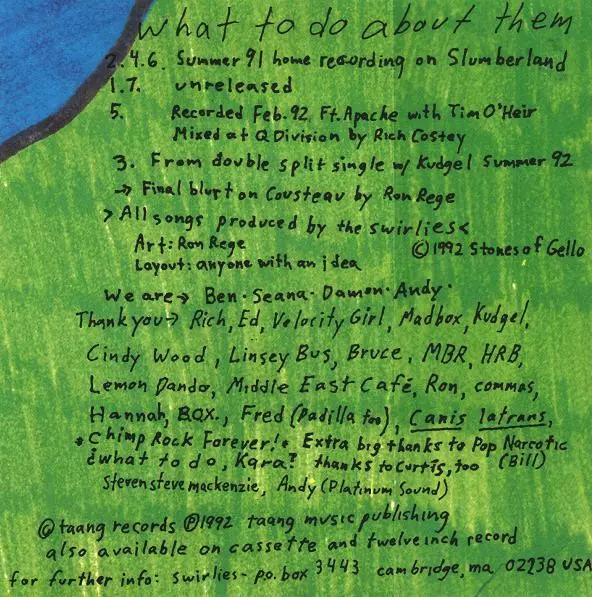 what to do about them
2.4.6. Summer 91 home recording on Slumberland
1.7. unreleased
5. Recorded Feb. 92 Ft. Apache with Tim O'Heir
Mixed at Q Division by Rich Costey
3. From double split single w/ Kudgel Summer 92
→ Final blurt on Cousteau by Ron Rege
> All songs produced by the swirlies <
Art: Ron Rege ©1992 Stones of Gello
Layout: anyone with an idea
We are → Ben · Seana · Damon · Andy ·
Thank you → Rich, Ed, Velocity Girl, Madbox, Kudgel,
Cindy Wood, Linsey Bus, Bruce, MBR, HRB,
Lemon Dando, Middle East Café, Ron, commas,
Hannah, BQX., Fred (Padilla too), Canis latrans,
* Chimp Rock Forever! * Extra big thanks to Pop Narcotic
¿what to do, Kara? thanks to Curtis, too (Bill)
Steven steve mackenzie, Andy (Platinum Sound)
© taang records ℗1992 taang music publishing
also available on cassette and twelve inch record
for further info: swirlies - p.o. box 3443 cambridge, ma 02238 USA